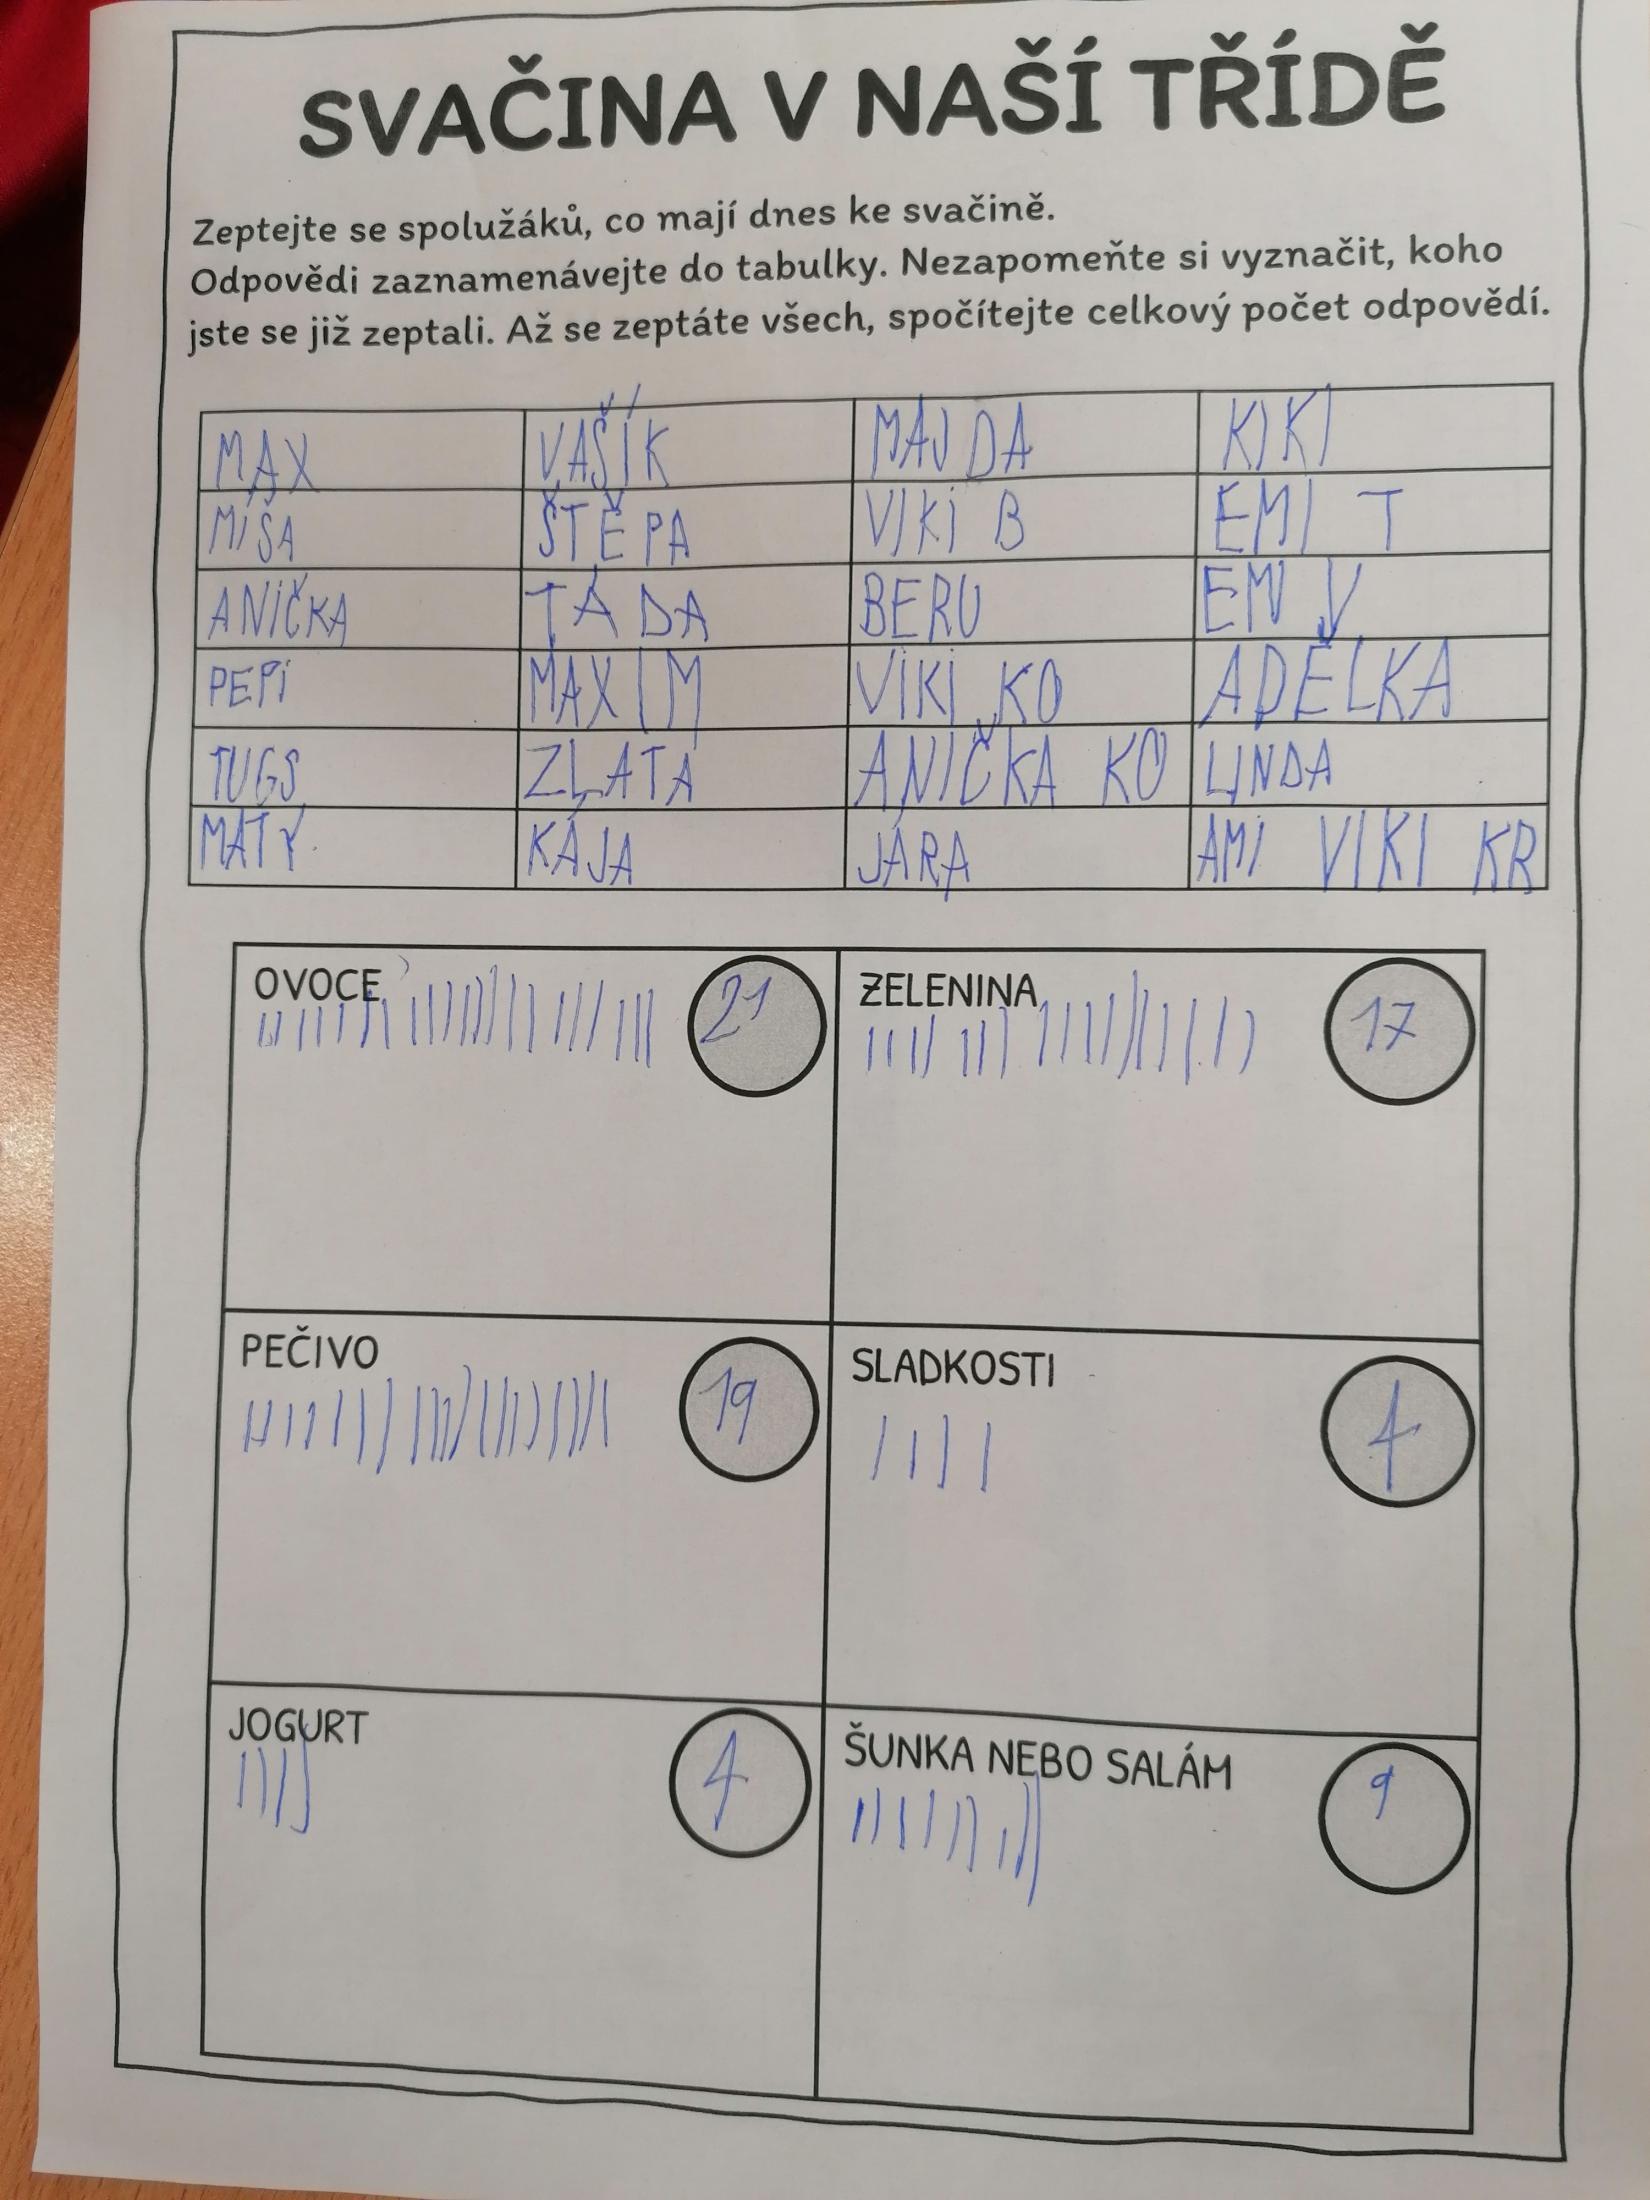 SVAČINA V NAŠÍ TŘÍDĚ
Zeptejte se spolužáků, co mají dnes ke svačině.
Odpovědi zaznamenávejte do tabulky. Nezapomeňte si vyznačit, koho
jste se již zeptali. Až se zeptáte všech, spočítejte celkový počet odpovědí.
MAX VAŠÍK MAJDA KIKI
MÍŠA ŠTĚPA VIKI B EMI T
ANIČKA TÁDA BERU EMI V
PEPI MAXIM VIKI KO ADÉLKA
TUGS ZLATA ANIČKA KO LINDA
MATY KÁJA JÁRA AMI VIKI KR
OVOCE 21 ZELENINA 17
PEČIVO 19 SLADKOSTI 4
JOGURT 4 ŠUNKA NEBO SALÁM 9